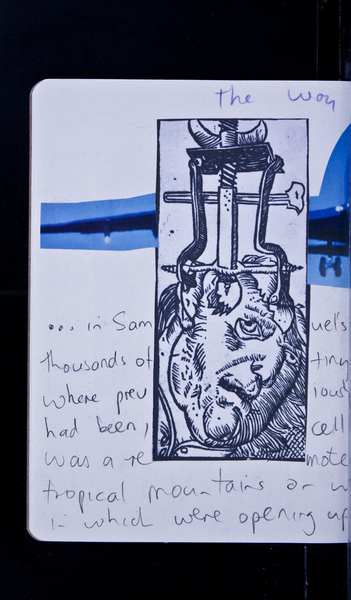 the way
... in Sam uel's
thousands of tiny
where prev ious
had been, cell
was a re mote
tropical mountains or
in which were opening up